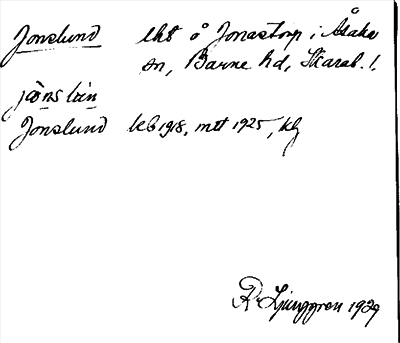 Jonslund lht å Jonastorp i Åsaka
sn, Barne hd, Skarab. l.
jòns lùn
Jonslund kb 1918, mtl 1925, kg
R. Ljunggren 1929